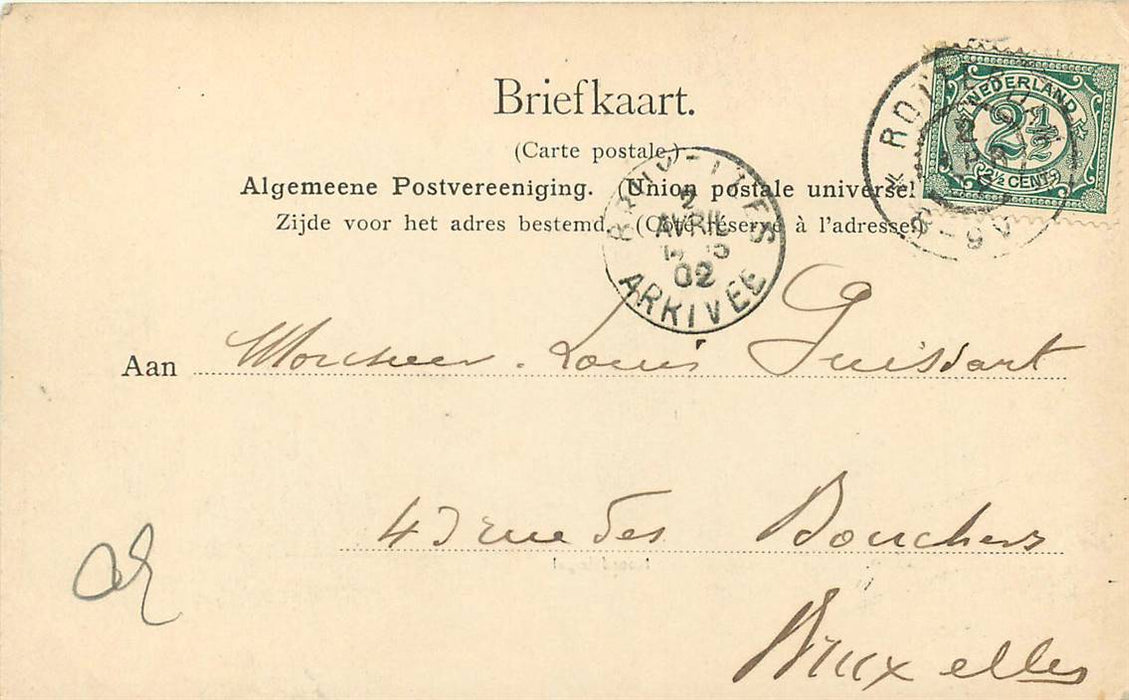 Briefkaart.
(Carte postale.)
Algemeene Postvereeniging. (Union postale universel
Zijde voor het adres bestemd. (Côté réservé à l'adresse)
NEDERLAND
2½
2½ CENT
2
AVRIL
02
ARRIVEE
Aan Monsieur Louis Guissart
43 rue des Bouchers
Bruxelles